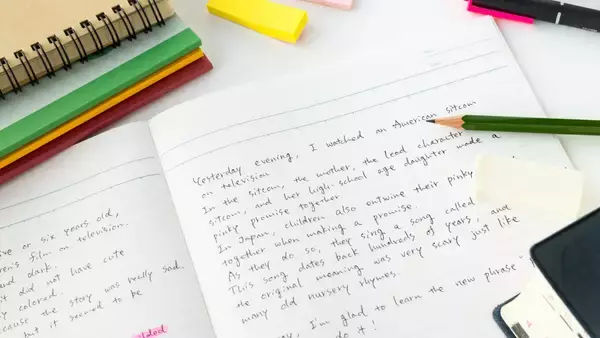 ve or six years old,
ren's film on television.
and dark.
it did not have cute
y colored.
because the story was really sad.
but it seemed to be
Yesterday evening, I watched an American sitcom
on television
In the sitcom, the mother, the lead character
sitcom, and her high-school age daughter made a
pinky promise together.
In Japan, children also entwine their pinky
together when making a promise.
As they do so, they sing a song called
This song dates back hundreds of years, and
the original meaning was very scary just like
many old nursery rhymes.
I'm glad to learn the new phrase
do it!